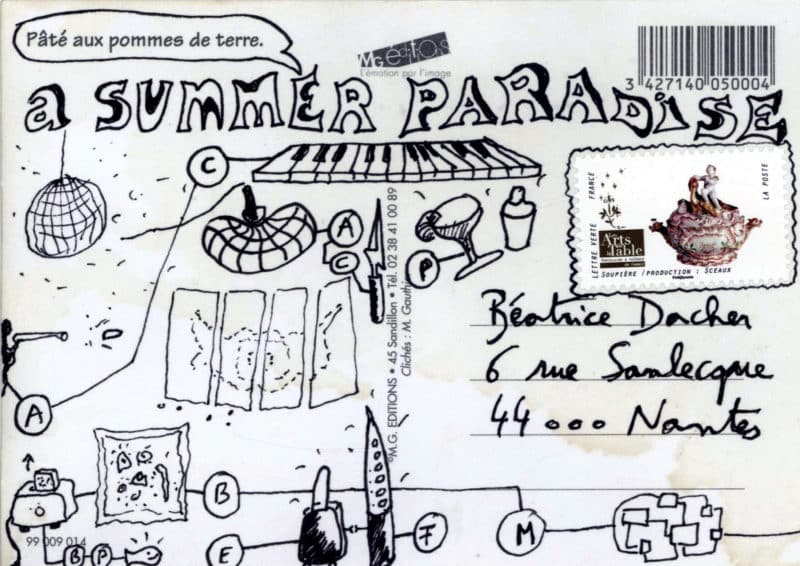 Pâté aux pommes de terre.
M.G. éditions
L'émotion par l'image
3 427140 050004
a SUMMER PARADISE
C
A
C
P
LETTRE VERTE FRANCE
LA POSTE
Les Arts de la Table
SOUPIÈRE / PRODUCTION : SCEAUX
©M.G. EDITIONS • 45 Sandillon • Tél. 02 38 41 00 89
Clichés : M. Gauthier
Béatrice Dacher
6 rue Sanlecque
44000 Nantes
A
B
M
B
P
E
F
99 009 014